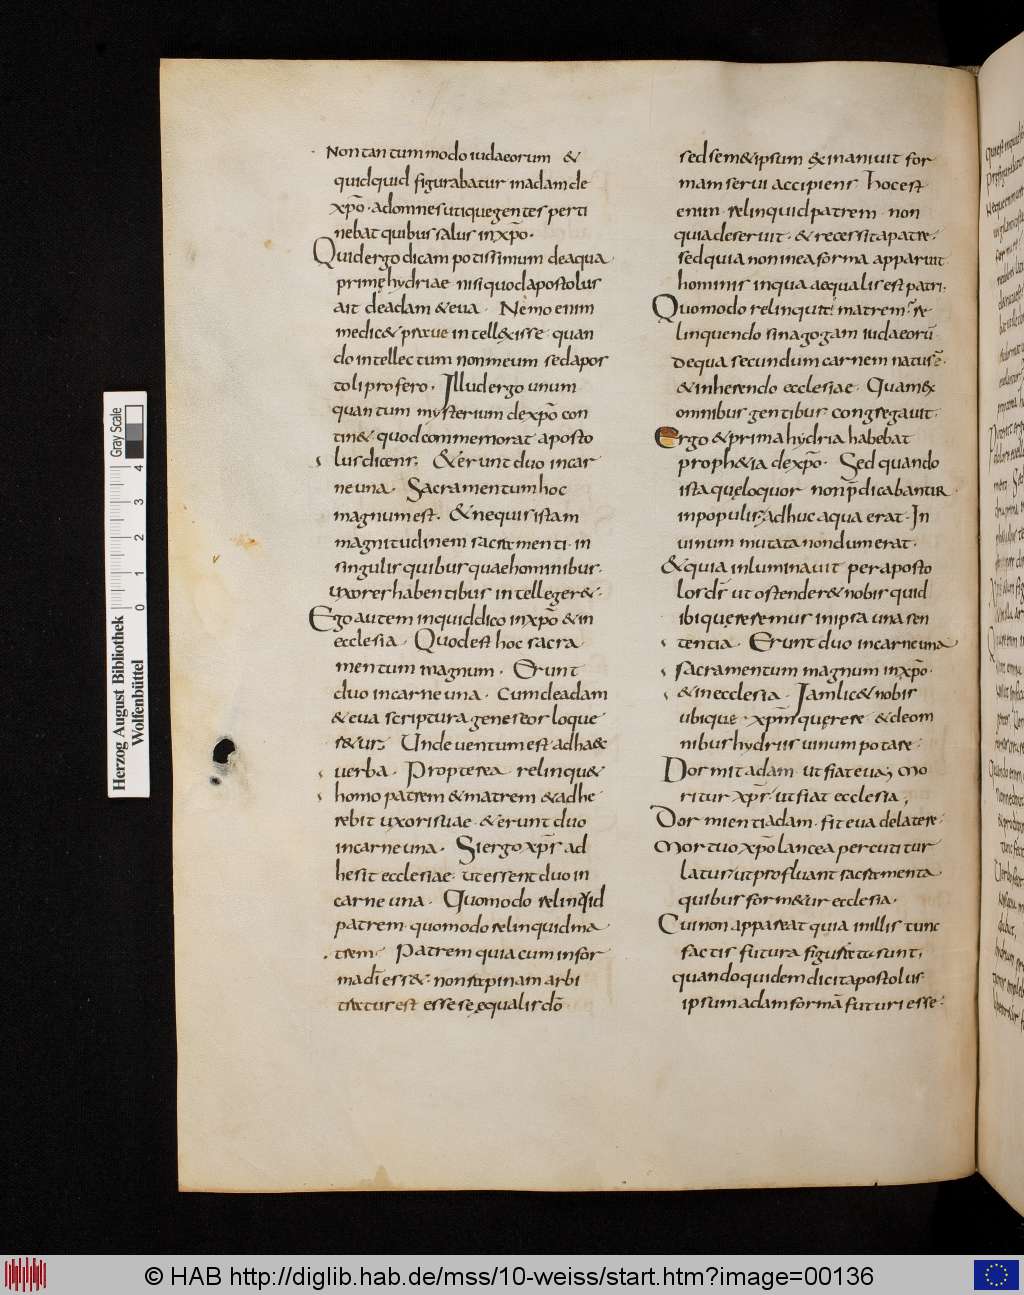 Non tantummodo iudaeorum &
quidquid figurabatur in adam de
xp̄o · ad omnes utique gentes perti
nebat quibus salus in xp̄o ·
Quid ergo dicam potissimum de aqua
primę hydriae nisi quod apostolus
ait de adam & eva · Nemo enim
me dic& praeue intell&isse · quan
do intellectum non meum sed apos
toli profero · Illud ergo unum
quantum mysterium de xp̄o con
tin& quod commemorat aposto
lus dicens; & erunt duo in car
ne una · Sacramentum hoc
magnum est · & ne quis istam
magnitudinem sacramenti · in
singulis quibusquae hominibus ·
uxores habentibus intelleger& ·
Ego autem inquid dico in xp̄o & in
ecclesia · Quod est hoc sacra
mentum magnum · Erunt
duo in carne una · Cum de adam
& eva scriptura geneseos loque
r&ur; Unde ventum est ad haec
verba · Propterea relinqu&
homo patrem & matrem & adhe
rebit uxori suae · & erunt duo
in carne una · Si ergo xp̄s ad
hesit ecclesiae · ut essent duo in
carne una · Quomodo relinquid
patrem · quomodo relinquid ma
trem · Patrem quia cum in for
ma dī ess& · non rapinam arbi
tratur est esse se ęqualis dō ·
sed sem&ipsum exinanivit for
mam servi accipiens hoc est
enim · relinquid patrem · non
quia deseruit · & recessit a patre ·
sed quia non in ea forma apparuit
hominis in qua aequalis est patri ·
Quomodo relinquit matrem · re
linquendo sinagogam iudaeorū
de qua secundum carnem natus ē ·
& inherendo ecclesiae · Quam ex
omnibus gentibus congregavit ·
Ergo & prima hydria habebat
proph&ia de xp̄o · Sed quando
ista quę loquor non p̄dicabantur
in populis; adhuc aqua erat · In
vinum mutata nondum erat ·
& quia inluminavit per aposto
los dn̄s ut ostender& nobis quid
ibi quereremus in ipsa una sen
tentia · Erunt duo in carne una
sacramentum magnum in xp̄o ·
& in ecclesia · Iam lic& nobis
ubique · xp̄m querere & de om
nibus hydriis vinum potare ·
Dormit adam · ut fiat eua; mo
ritur xp̄s · ut fiat ecclesia;
Dormienti adam · fit eva de latere ·
Mortuo xp̄o lancea percutitur
latus; ut profluant sacramenta
quibus form&ur ecclesia ·
Cui non appareat quia in illis tunc
factis futura figurata sunt,
quandoquidem dicit apostolus
ipsum adam formā futuri esse ·
Herzog August Bibliothek
Wolfenbüttel
Gray Scale
0 1 2 3 4
© HAB http://diglib.hab.de/mss/10-weiss/start.htm?image=00136